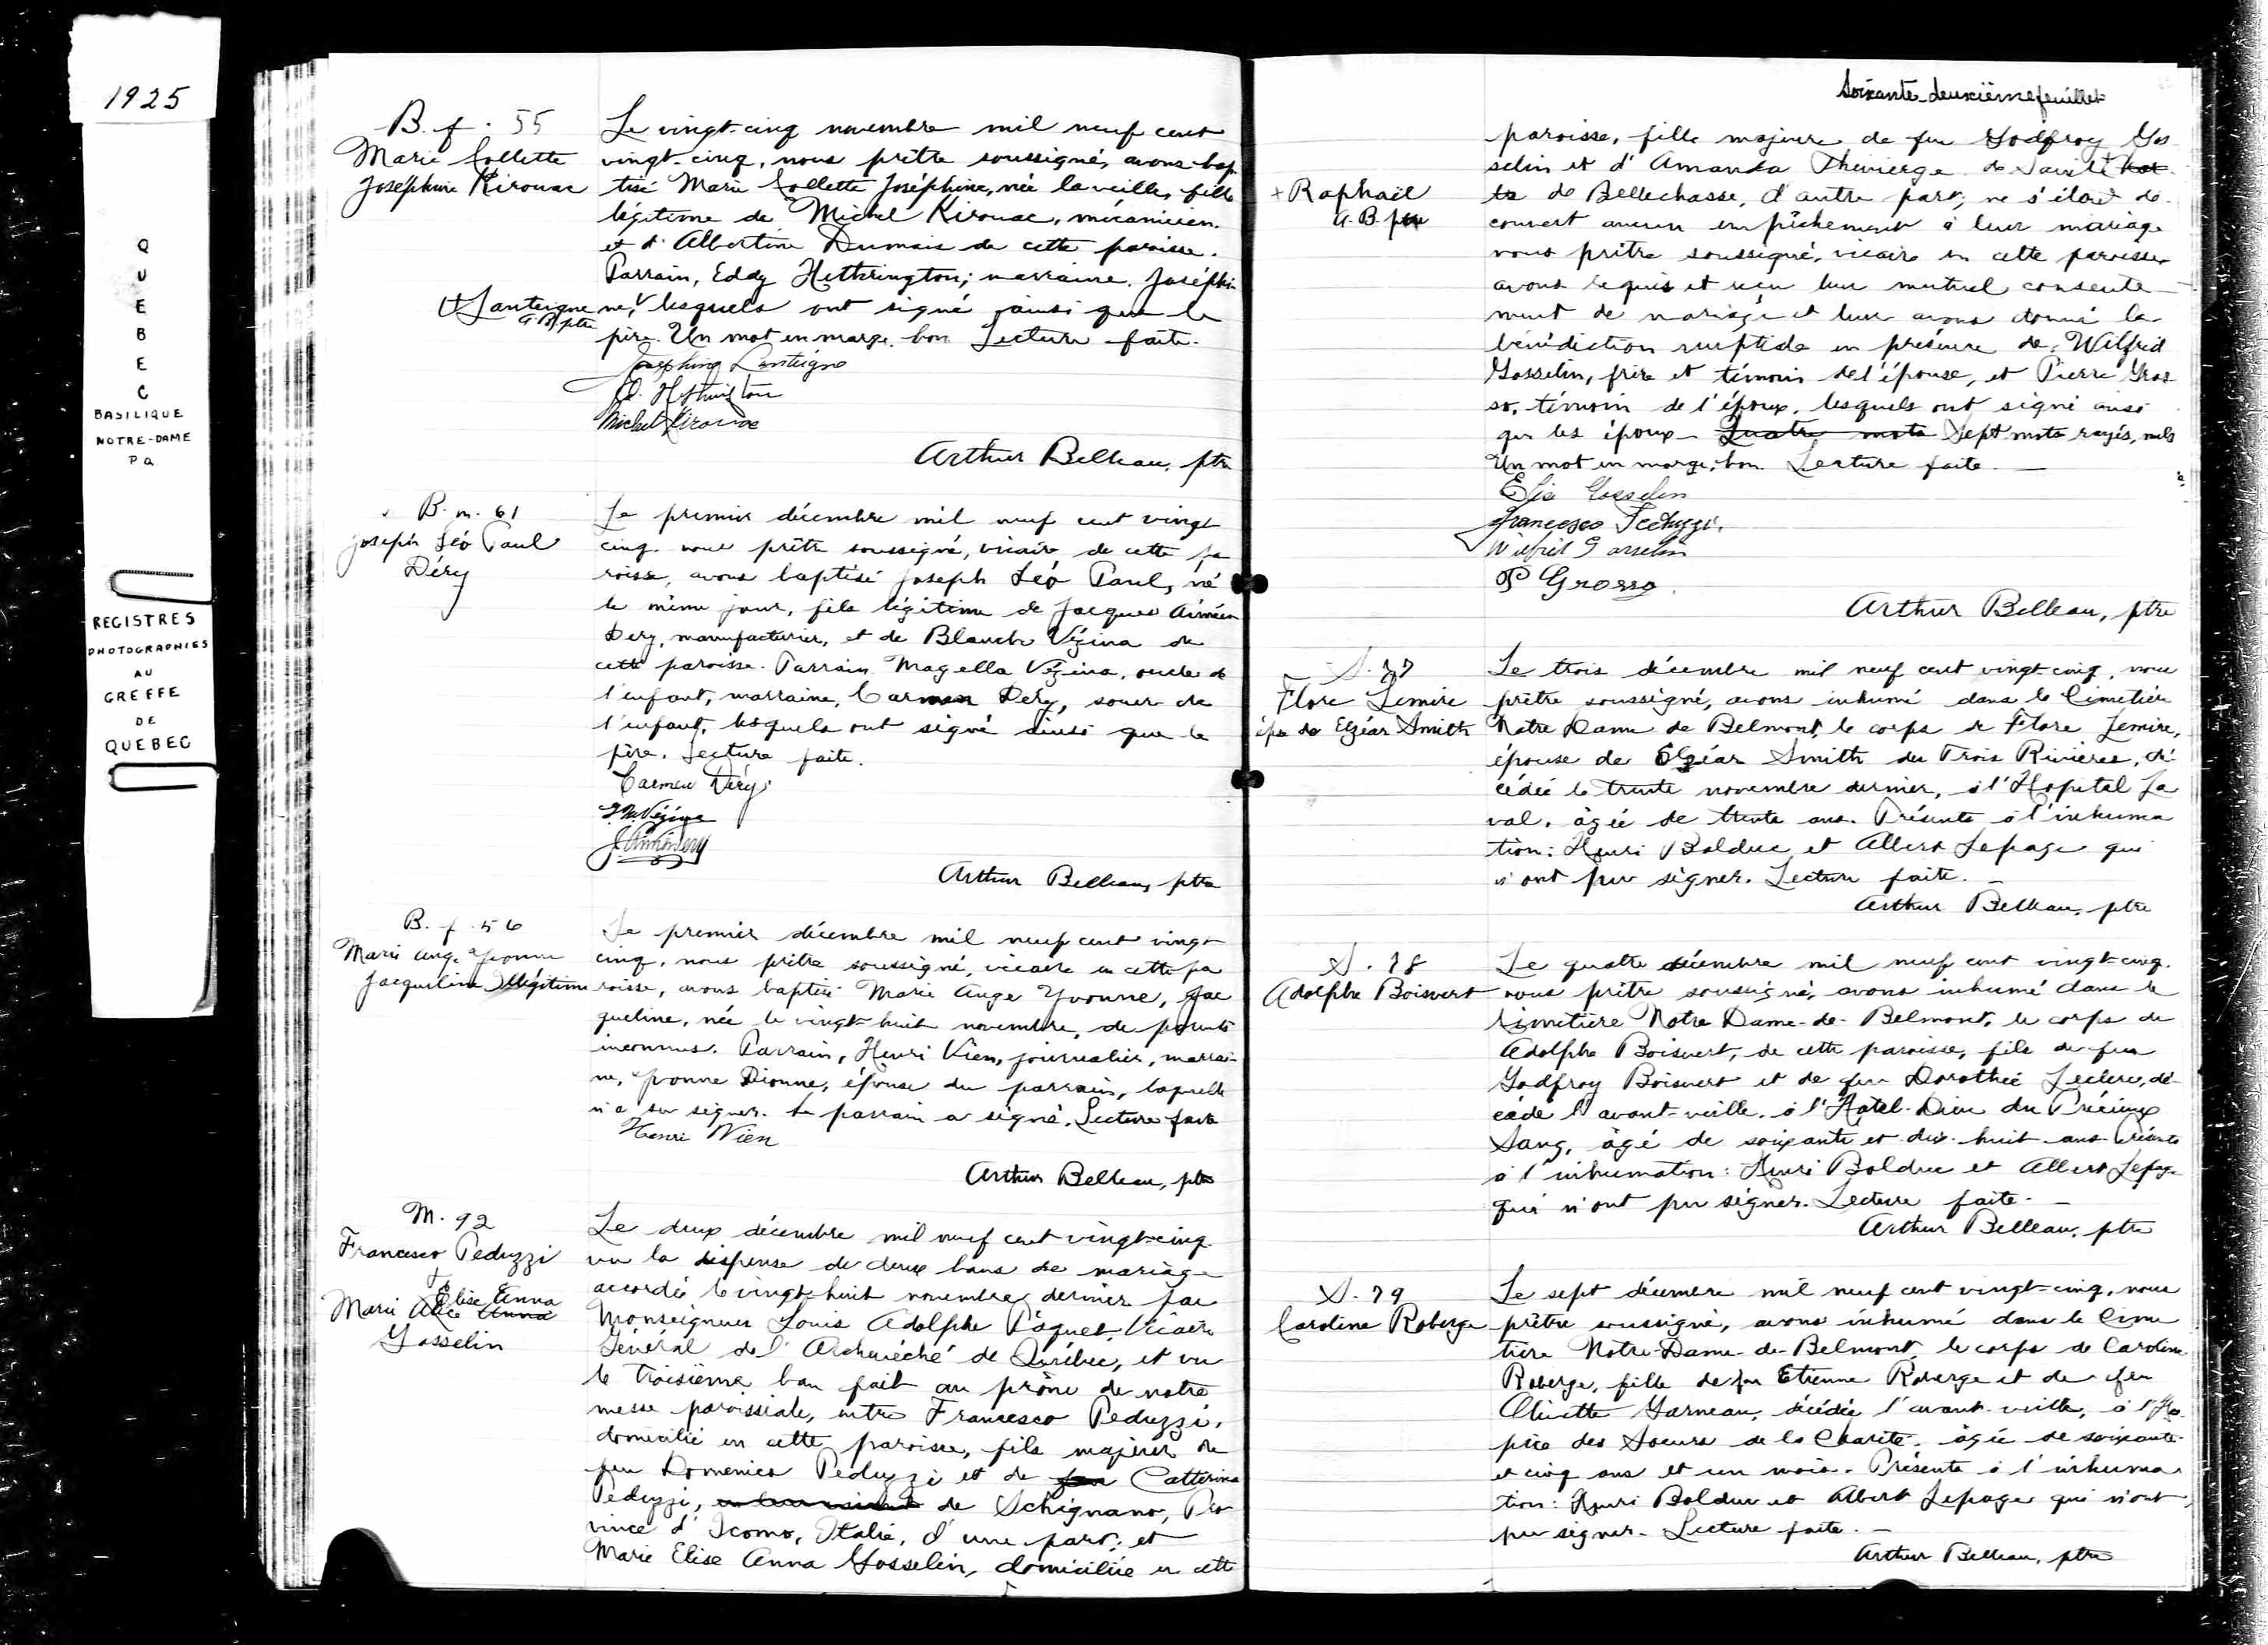 1925
QUEBEC
BASILIQUE
NOTRE-DAME
PQ
REGISTRES
PHOTOGRAPHIES
AU
GREFFE
DE
QUEBEC
B. f. 55
Marie Collette
Joséphine Kirouac
Le vingt-cinq novembre mil neuf cent
vingt-cinq, nous prêtre soussigné, avons bap
tisé Marie Collette Joséphine, née la veille, fille
légitime de Michel Kirouac, mécanicien
et d'Albertine Dumais de cette paroisse.
Parrain, Eddy Hethrington; marraine, Joséphi
+ Lanteigne
A. B. ptre
ne + lesquels ont signé ainsi que le
père. Un mot en marge, bon Lecture faite.
Josephine Lanteigne
Michel Kirouac
Arthur Belleau, ptre
B. m. 61
Joseph Léo Paul
Déry
Le premier décembre mil neuf cent vingt
cinq, nous prêtre soussigné, vicaire de cette pa
roisse, avons baptisé Joseph Léo Paul, né
le même jour, fils légitime de Jacques Aimé
Dery, manufacturier, et de Blanche Vézina de
cette paroisse. Parrain Magella Vézina, oncle de
l'enfant, marraine, Carmen Déry, soeur de
l'enfant, lesquels ont signé ainsi que le
père. Lecture faite.
Carmen Déry
J. M. Vézina
Arthur Belleau, ptre
B. f. 56
Marie Ange Yvonne
Jacqueline Illégitime
Le premier décembre mil neuf cent vingt
cinq, nous prêtre soussigné, vicaire en cette pa
roisse, avons baptisé Marie Ange Yvonne, Jac
queline, née le vingt-huit novembre, de parents
inconnus. Parrain, Henri Vien, journalier, marrai-
ne, Yvonne Dionne, épouse du parrain, laquelle
n'a su signer. Le parrain a signé. Lecture faite
Henri Vien
Arthur Belleau, ptre
M. 92
Francesco Peduzzi
&
Elise Anna
Marie Alice Anna
Gosselin
Le deux décembre mil neuf cent vingt-cinq
vu la dispense de deux bans de mariage
accordée le vingt-huit novembre dernier par
Monseigneur Louis Adolphe Pâquet, Vicaire
Général de l'Archevêché de Québec, et vu
le troisième ban fait au prône de notre
messe paroissiale, entre Francesco Peduzzi,
domicilié en cette paroisse, fils majeur de
feu Domenico Peduzzi et de feu Catterina
Peduzzi, de Schignano, Pro
vince d'Icomo, Italie, d'une part; et
Marie Elise Anna Gosselin, domiciliée en cette
Soixante-deuxième feuillet
paroisse, fille majeure de feu Godfroy Gos
selin et d'Amanda Thivierge de Sainte +
+ Raphaël
A. B. ptre
de Bellechasse, d'autre part; ne s'étant dé
couvert aucun empêchement à leur mariage
nous prêtre soussigné, vicaire en cette paroisse
avons requis et reçu leur mutuel consente
ment de mariage et leur avons donné la
bénédiction nuptiale en présence de Wilfrid
Gosselin, frère et témoin de l'épouse, et Pierre Gros
so, témoin de l'époux, lesquels ont signé ainsi
que les époux - Quatre mots Sept mots rayés, nuls
Un mot en marge, bon. Lecture faite.
Elise Gosselin
Francesco Peduzzi.
Wilfrid Gosselin
P Grosso
Arthur Belleau, ptre
S. 77
Flore Lemire
épse de Elzéar Smith
Le trois décembre mil neuf cent vingt-cinq, nous
prêtre soussigné, avons inhumé dans le Cimetière
Notre Dame de Belmont, le corps de Flore Lemire,
épouse de Elzéar Smith des Trois Rivières, dé-
cédée le trente novembre dernier, à l'Hopital La
val, âgée de trente ans. Présents à l'inhuma
tion: Henri Bolduc et Albert Lepage qui
n'ont pu signer. Lecture faite.
Arthur Belleau, ptre
S. 78
Adolphe Boisvert
Le quatre décembre mil neuf cent vingt-cinq,
nous prêtre soussigné, avons inhumé dans le
cimetière Notre Dame-de-Belmont, le corps de
Adolphe Boisvert, de cette paroisse, fils de feu
Godfroy Boisvert et de feu Dorothée Leclerc, dé-
cédé l'avant-veille, à l'Hotel-Dieu du Précieux
Sang, âgé de soixante et dix-huit ans. Présents
à l'inhumation: Henri Bolduc et Albert Lepage
qui n'ont pu signer. Lecture faite.
Arthur Belleau, ptre
S. 79
Caroline Roberge
Le sept décembre mil neuf cent vingt-cinq, nous
prêtre soussigné, avons inhumé dans le Cime
tière Notre-Dame-de-Belmont, le corps de Caroline
Roberge, fille de feu Etienne Roberge et de feu
Olivette Garneau, décédée l'avant-veille, à l'Hos
pice des Soeurs de la Charité, âgée de soixante
et cinq ans et un mois. Présents à l'inhuma
tion: Henri Bolduc et Albert Lepage qui n'ont
pu signer. Lecture faite.
Arthur Belleau, ptre